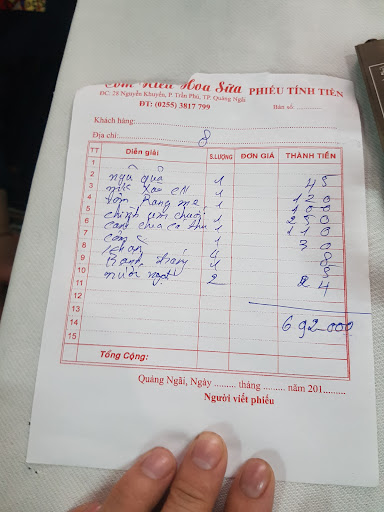 Cơm Niêu Hoa Sữa
ĐC: 28 Nguyễn Khuyến, P. Trần Phú, TP. Quảng Ngãi
ĐT: (0255) 3817 799
PHIẾU TÍNH TIỀN
Bàn số:
Khách hàng:
Địa chỉ: 8
TT Diễn giải S.LƯỢNG ĐƠN GIÁ THÀNH TIỀN
1
2 ngũ quả 1 45
3 mực xào 1 120
4 tôm Rang me 1 100
5 chình um chuối 1 250
6 canh chua cá 1 110
7 cơm 1 30
8 khăn 4 8
9 Bánh tráng 1 5
10 nước ngọt 2 24
11
12
13 692000
14
15
Tổng Cộng:
Quảng Ngãi, Ngày ......... tháng ......... năm 201.........
Người viết phiếu